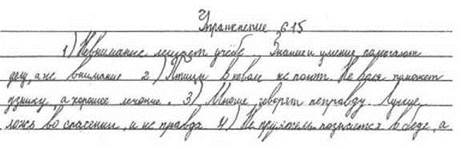 Упражнение 615
1) Невнимание мешает учёбе. Знание и умение помогают
делу, а не внимание 2) Птицы в неволе не поют. Не врач поможет
узнику, а хорошее лечение. 3) Многие говорят неправду. Лучше
ложь во спасении, и не правда 4) Не приятель познаётся в беде, а